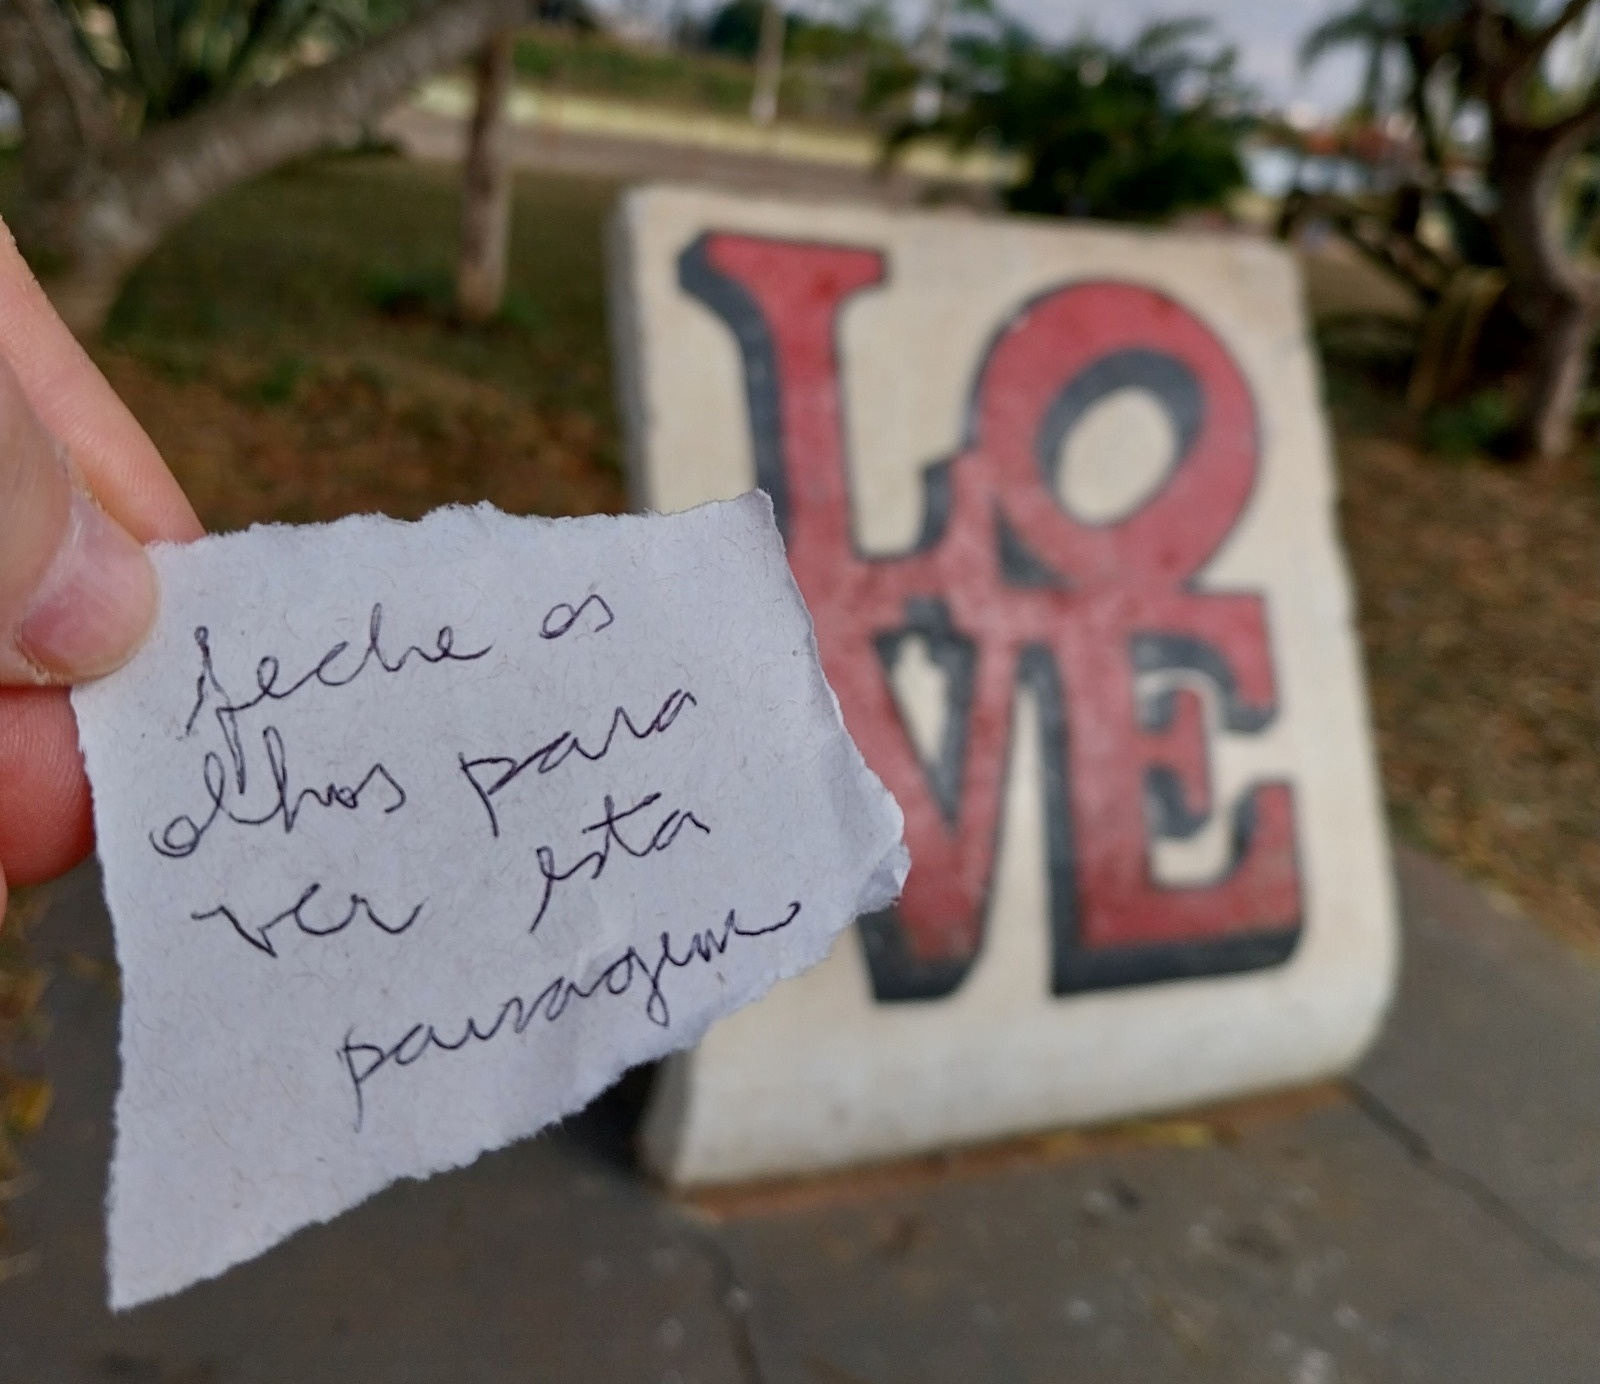 feche os
olhos para
ver esta
paisagem
LO
VE